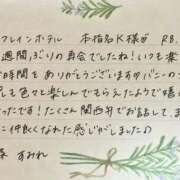 フレインホテル 本指名K様 RB.
週間ぶりの再会でしたね!いつも楽
時間をありがとうございます バニーの
も色々楽しんでもらえたようで嬉
ったです!たくさん関西弁でお話して
に仲良くなれた感じがしました♪
森 すみれ